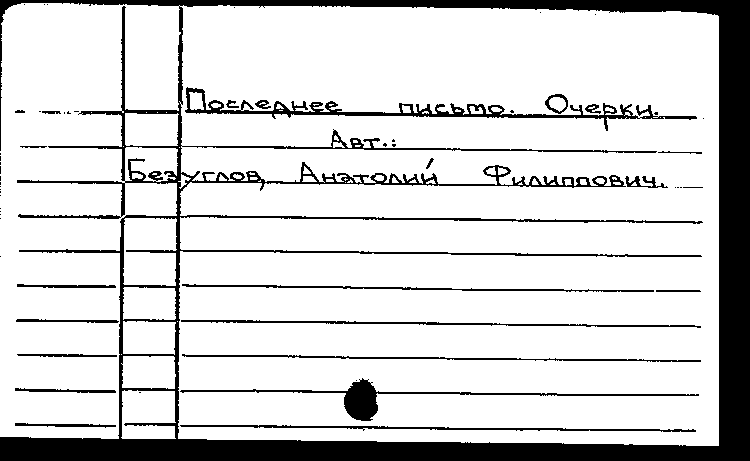 Последнее письмо. Очерки.
Авт.:
Безуглов, Анатолий Филиппович.